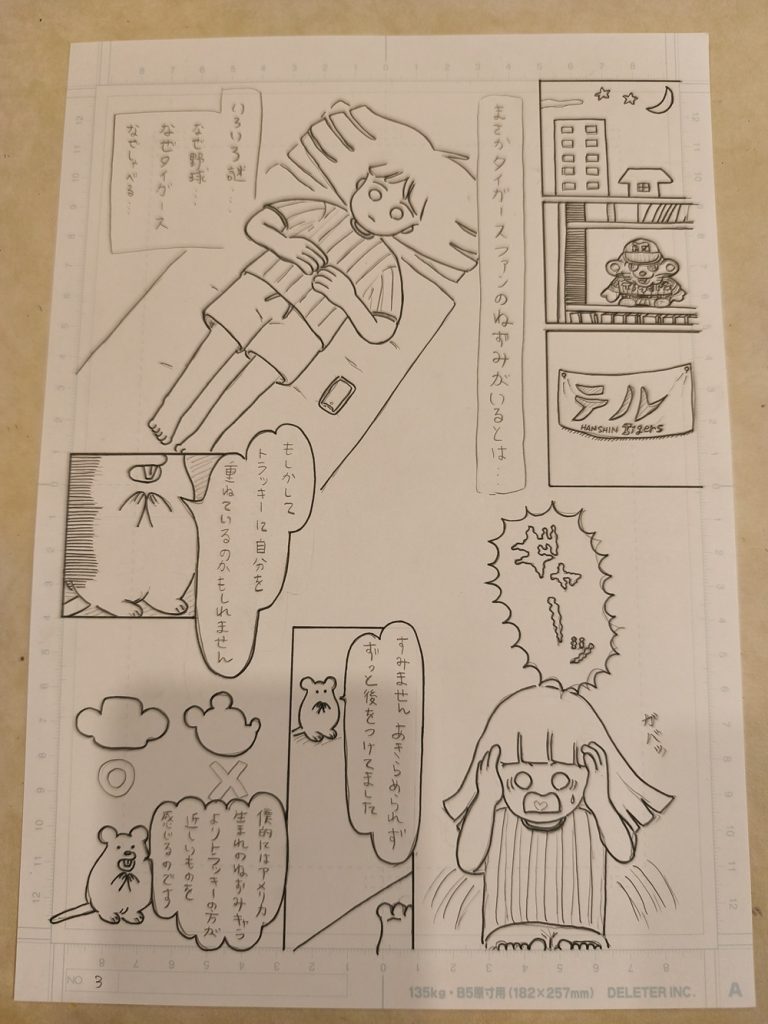 まさかタイガースファンのねずみがいるとは…
テル
HANSHIN Tigers
いろいろ謎……
なぜ野球…
なぜタイガース
なぜしゃべる…
もしかして
トラッキーに自分を
重ねているのかもしれません
ギャーッ
ガバッ
すみません あきらめられず
ずっと後をつけてました
僕的にはアメリカ
生まれのねずみキャラ
よりトラッキーの方が
近しいものを
感じるのです
NO 3
135kg・B5原寸用(182×257mm) DELETER INC. A